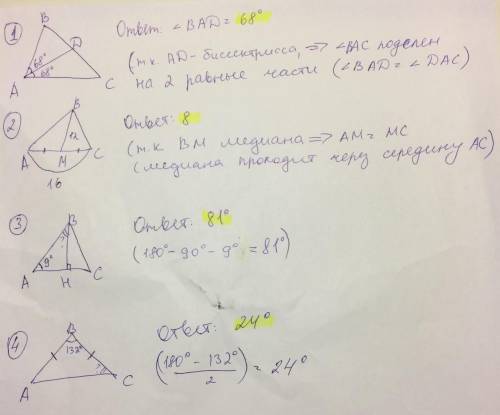 1
B
D
A
68°
68°
C
Ответ: ∠BAD = 68°
(т.к. AD - биссектриса, => ∠BAC поделен
на 2 равные части (∠BAD = ∠DAC)
2
B
A
M
C
16
Ответ: 8
(т.к BM медиана => AM = MC
(медиана проходит через середину AC)
3
B
?
9°
A
H
C
Ответ: 81°
(180° - 90° - 9° = 81°)
4
B
132°
A
?
C
Ответ: 24°
(180° - 132° / 2) = 24°